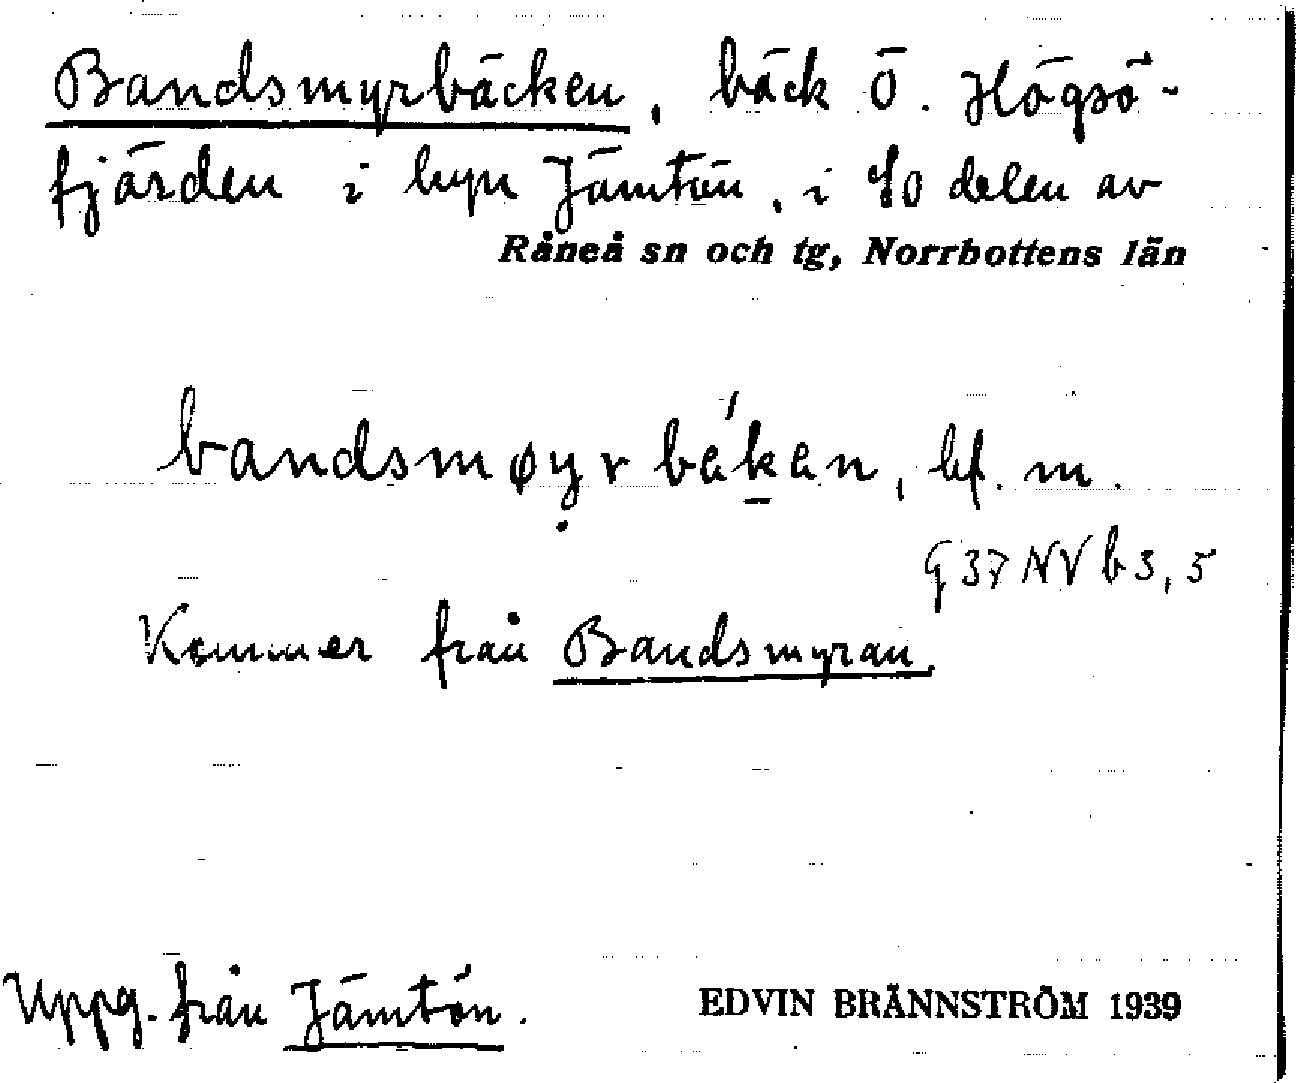 Bandsmyrbäcken, bäck Ö. Högsö-
fjärden i byn Jämtön, i SO delen av
Råneå sn och tg, Norrbottens län
bandsmøyr bèkan, bf. m.
Kommer från Bandsmyran.
Uppg. från Jämtön.
EDVIN BRÄNNSTRÖM 1939